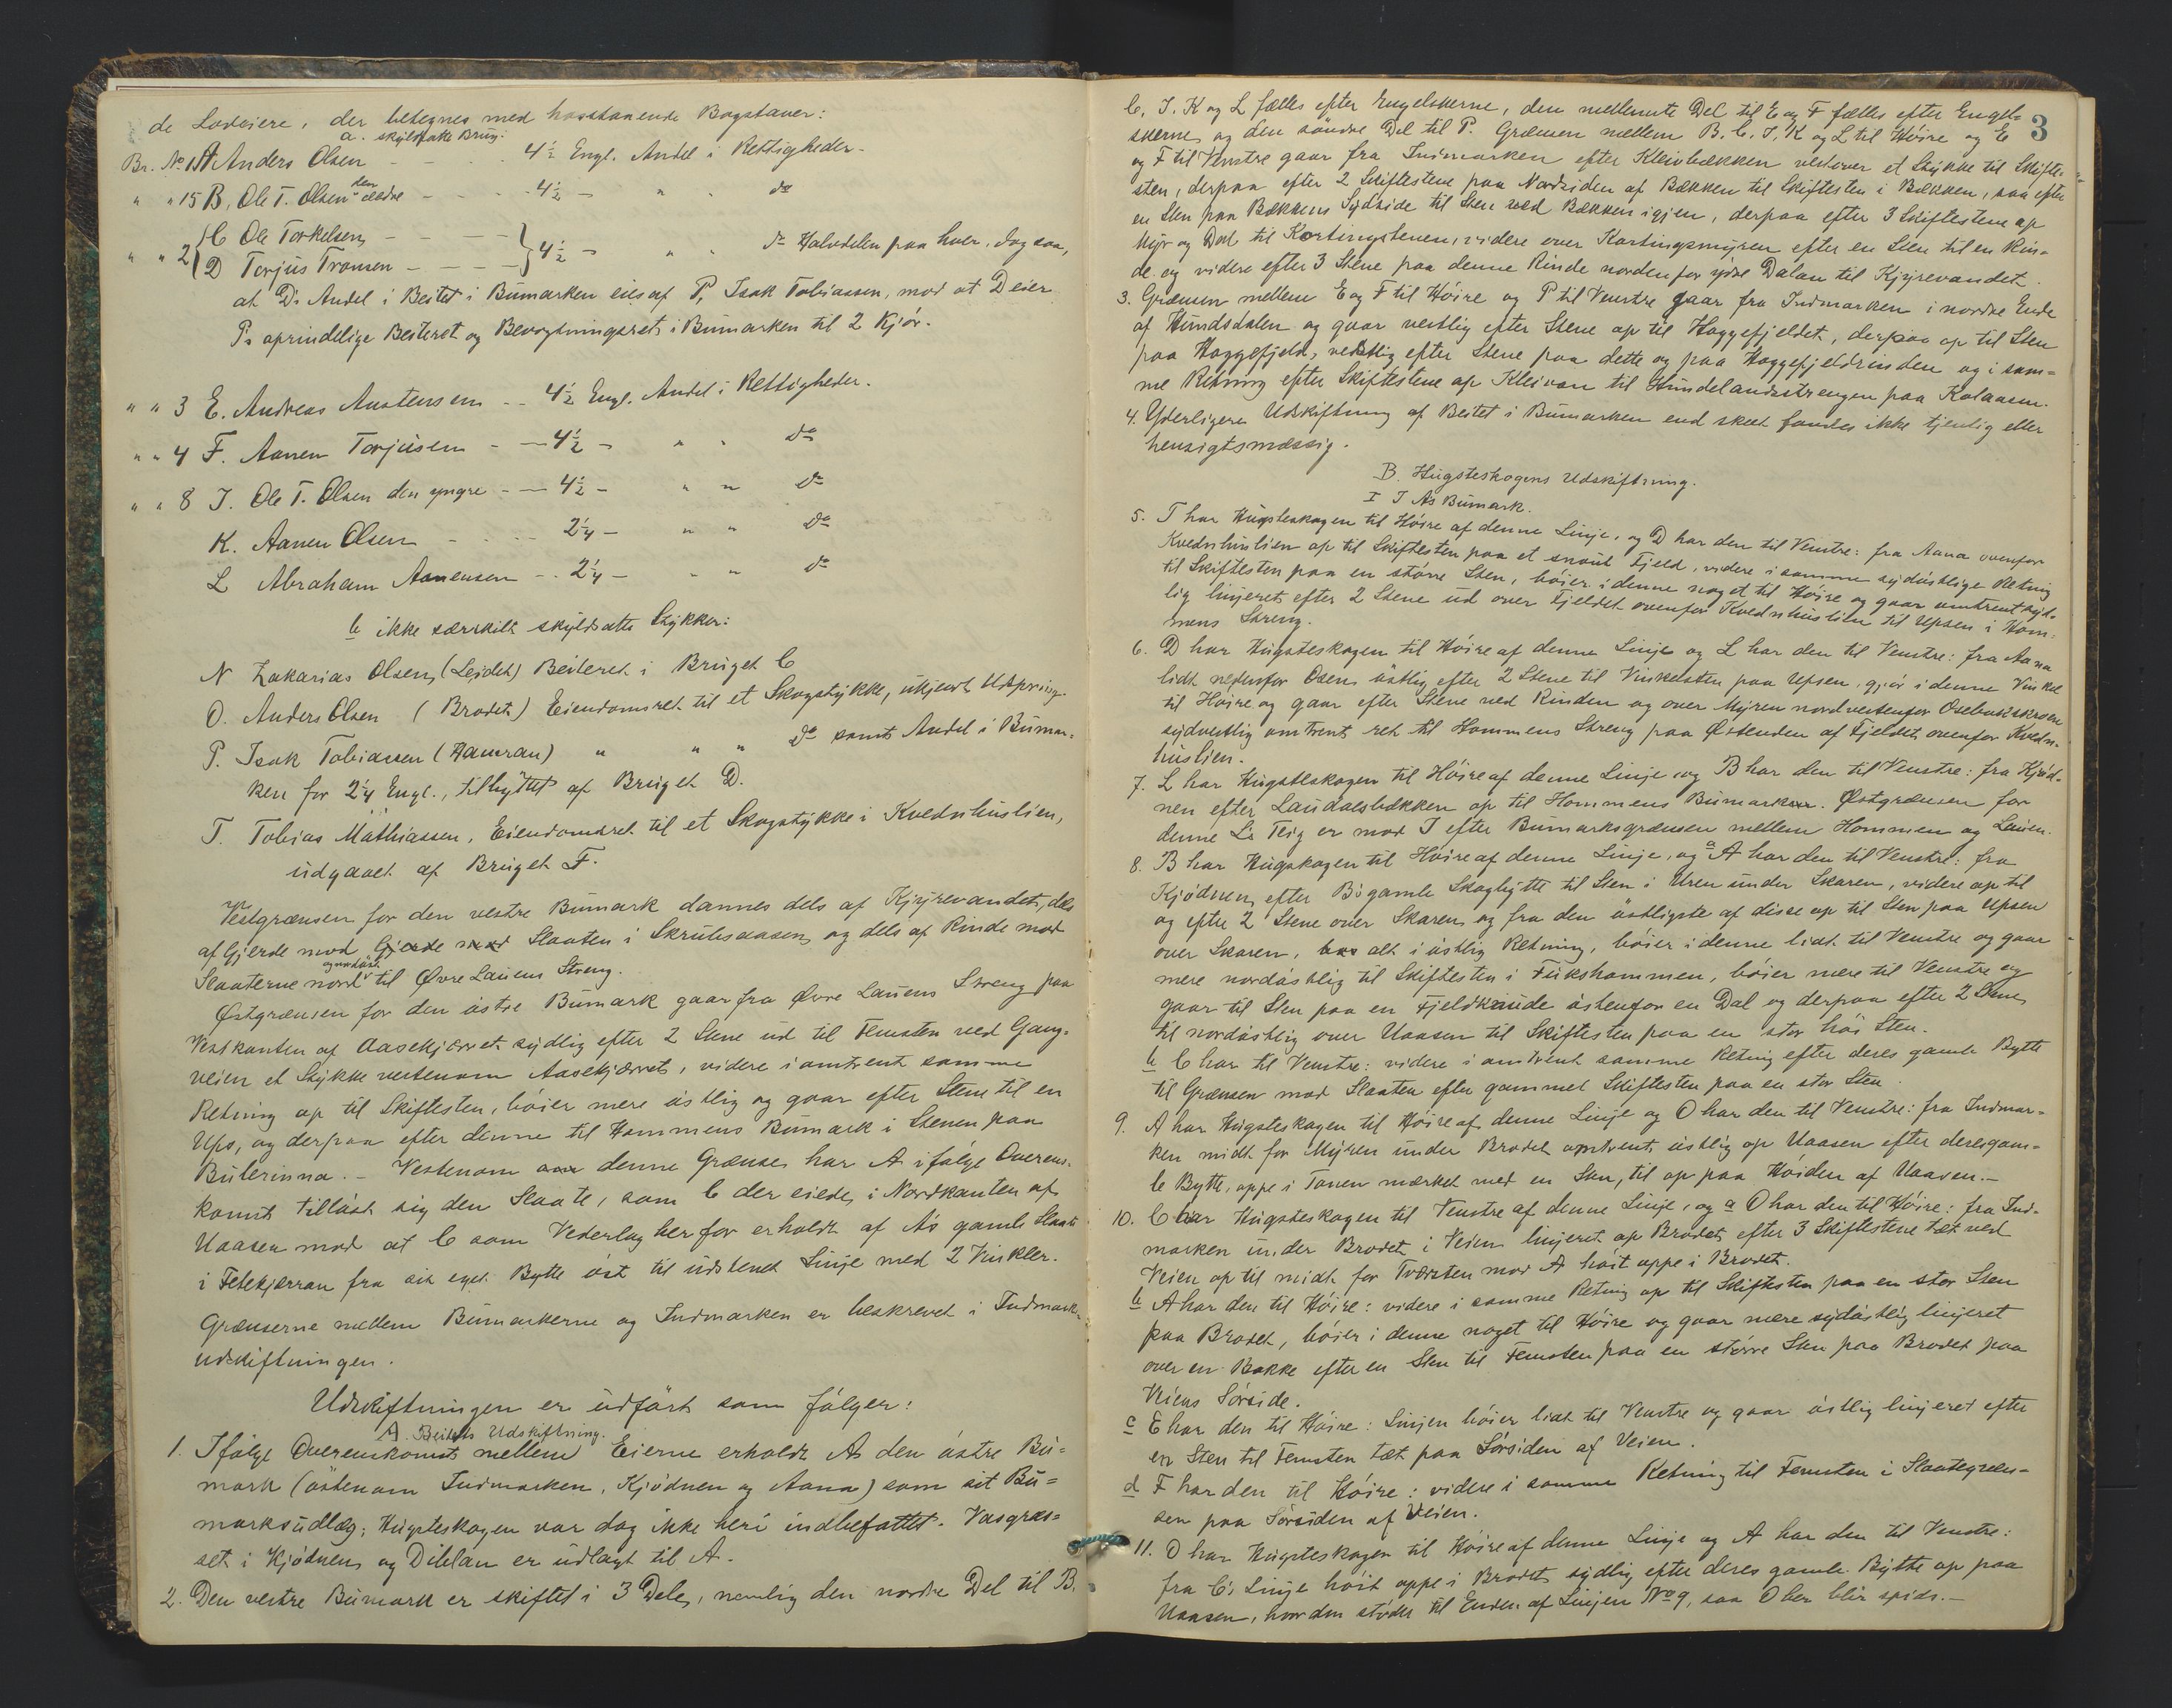 de Lodeiere, der betegnes med hosstaaende Bogstaver:
a. skyldsatte Brug:
Br. No 1 A Anders Olsen - - - 4½ Engl. Andel i Rettigheder.
" " 15 B, Ole T. Olsen den ældre - - - 4½ - " " do
" " 2 { C Ole Torkelsen - - - -
D Torjus Tronsen - - - - } 4½ - " " do Halvdelen paa hver, dog saa,
at D's Andel i Beitet i Bumarken eies af P, Isak Tobiassen, mod at D eier
Ps oprindelige Beiteret og Bevogtningsret i Bumarken til 2 Kjør.
" " 3 E. Andreas Austensen - - 4½ Engl. Andel i Rettigheder.
" " 4 F. Aanen Torjusen - - 4½ - " " do
" " 8 J. Ole T. Olsen den yngre - - 4½ - " " do
K. Aanen Olsen - - - 2¼ - " " do
L Abraham Aanensen - - 2¼ - " " do
b ikke særskilt skyldsatte Stykker:
N Zakarias Olsen, (Leidet) Beiteret i Bruget C
O. Anders Olsen (Brodet) Eiendomsret til et Skogstykke, ukjendt Udspring.
P. Isak Tobiassen (Hamran) " " " do samt Andel i Bumar-
ken for 2¼ Engl., tilbyttet af Bruget D.
T. Tobias Mathiassen, Eiendomsret til et Skogstykke i Kvednhuslien,
udgaaet af Bruget F.
Vestgrænsen for den vestre Bumark dannes dels af Kjyrevandet, dels
af Gjerde mod Gjerde mod Slaaten i Skrubsaasen, og dels af Rinde mod
Slaaterne nord og nordöst til Øvre Lauens Streng.
Østgrænsen for den östre Bumark gaar fra Øvre Lauens Streng paa
Vestkanten af Aasekjærret sydlig efter 2 Stene ud til Femsten ved Gang-
veien et Stykke vestenom Aasekjærret, videre i omtrent samme
Retning op til Skiftesten, böier mere östlig og gaar efter Stene til en
Ups, og derpaa efter denne til Hommens Bumark i Stenen paa
Bulerinna. - Vestenom denne Grænse har A ifølge Overens-
komst tilløst sig den Slaate, som C der eiede, i Nordkanten af
Uaasen mod at C som Vederlag herfor erholdt af A's gamle Slaate
i Fetekjærran fra sit eget Bytte öst til udstenet Linje med 2 Vinkler.
Grænserne mellem Bumarkerne og Indmarken er beskrevet i Indmark-
udskiftningen.
Udskiftningen er udført som følger:
A. Beitets Udskiftning.
1. Ifølge Overenskomst mellem Eierne erholdt A den östre Bu-
mark (östenom Indmarken, Kjödnen og Aana) som sit Bu-
marksudlæg; Hugsteskogen var dog ikke heri indbefattet. Vasgræs-
set i Kjödnen, og Diklan er udlagt til A.
2. Den vestre Bumark er skiftet i 3 Dele, nemlig den nordre Del til B.
3
C, J. K og L fælles efter Engelskerne, den mellemste Del til E og F fælles efter Engel-
skerne, og den söndre Del til P. Grænsen mellem B. C, J, K og L til Höire og E
og F til Venstre gaar fra Indmarken efter Kleivbækken vestover et Stykke til Skifte-
sten, derpaa efter 2 Skiftestene paa Nordsiden af Bækken til Skiftesten i Bækken, saa efter
en Sten paa Bækkens Sydside til Sten ved Bækken igjen, derpaa efter 3 Skiftestene op
Myr og Dal til Kortingstenen, videre over Kortingsmyren efter en Sten til en Rin-
de og videre efter 3 Stene paa denne Rinde nordenfor ydre Dalan til Kjyrevandet.
3. Grænsen mellem E og F til Höire og P til Venstre gaar fra Indmarken i nordre Ende
af Hundsdalen og gaar vestlig efter Stene op til Haggefjeldet, derpaa op til Sten
paa Haggefjeld, vestlig efter Stene paa dette og paa Haggefjeldrinden og i sam-
me Retning efter Skiftestene op Kleivan til Hundelandsstrengen paa Kalaasen.
4. Yderligere Udskiftning af Beitet i Bumarken end skeet fandtes ikke tjenlig eller
hensigtsmæssig.
B. Hugsteskogens Udskiftning.
I I As Bumark.
5. T har Hugsteskogen til Höire af denne Linje, og D har den til Venstre: fra Aana ovenfor
Kvednhuslien op til Skiftesten paa et snaut Fjeld, videre i samme sydöstlige Retning
til Skiftesten paa en större Sten, böier i denne noget til Höire og gaar omtrent syd-
lig linjeret efter 2 Stene ud over Fjeldet ovenfor Kvednhuslien til Upsen i Hom-
mens Streng.
6. D har Hugsteskogen til Höire af denne Linje og L har den til Venstre: fra Aana
lidt nedenfor Osen, östlig efter 2 Stene til Vinkelsten paa Upsen, gjör i denne Vinkel
til Höire og gaar efter Stene ved Rinden og over Myren nordvestenfor Osebukskroen
sydvestlig omtrent ret til Hommens Streng paa Østenden af Fjeldet ovenfor Kvedn-
huslien.
7. L har Hugsteskogen til Höire af denne Linje, og B har den til Venstre: fra Kjöd-
nen efter Laudalsbækken op til Hommens Bumark. Østgrænsen for
denne L's Teig er mod J efter Bumarksgrænsen mellem Hommen og Lauen.
8. B har Hugskogen til Höire af denne Linje, og a A har den til Venstre: fra
Kjödnen, efter B's gamle Skogbytte til Sten i Uren under Skaren, videre op til
og efter 2 Stene over Skaren, og fra den östligste af disse op til Sten paa Upsen
over Skaren, alt i östlig Retning, böier i denne lidt til Venstre og gaar
mere nordöstlig til Skiftesten i Fukshommen, böier mere til Venstre og
gaar til Sten paa en Fjeldknude östenfor en Dal og derpaa efter 2 Stene,
til nordöstlig over Uaasen til Skiftesten paa en stor höi Sten.
b C har til Venstre: videre i omtrent samme Retning efter deres gamle Bytte
til Grænsen mod Slaaten efter gammel Skiftesten paa en stor Sten.
9. A har Hugsteskogen til Höire af denne Linje og O har den til Venstre: fra Indmar-
ken midt for Myren under Brodet omtrent östlig op Uaasen efter deres gam-
le Bytte, oppe i Tonen mærket med en Sten, til op paa Höiden af Uaasen. -
10. C har Hugsteskogen til Venstre af denne Linje, og a O har den til Höire: fra Ind-
marken under Brodet i Veien linjeret op Brodet efter 3 Skiftestene tæt ved
Veien op til midt for Tværsten mod A höit oppe i Brodet.
b A har den til Höire: videre i samme Retning op til Skiftesten paa en stor Sten
paa Brodet, böier i denne noget til Höire og gaar mere sydöstlig linjeret
over en Bakke efter en Sten til Femsten paa en större Sten paa Brodet paa
Veiens Sörside.
c E har den til Höire: Linjen böier lidt til Venstre og gaar östlig linjeret efter
en Sten til Femsten tæt paa Sörsiden af Veien.
d F har den til Höire: videre i samme Retning til Femsten i Slaategræn-
sen paa Sörsiden af Veien.
11. O har Hugsteskogen til Höire af denne Linje og A har den til Venstre:
fra C's Linje höit oppe i Brodet, sydlig efter deres gamle Bytte op paa
Uaasen, hvor den stöder til Enden af Linjen No 9, saa O her blir spids. -